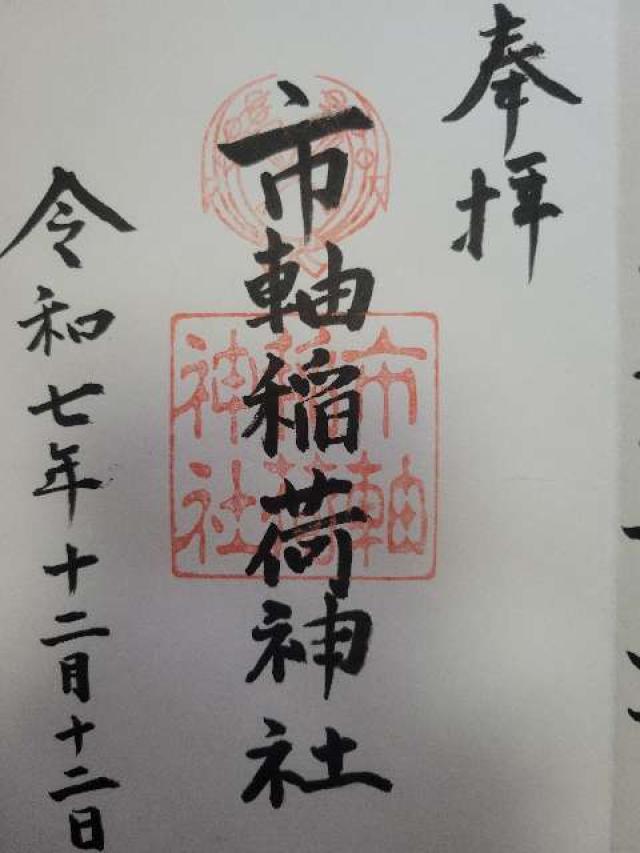 奉拝
市軸稲荷神社
市軸
稲荷
神社
令和七年十二月十二日